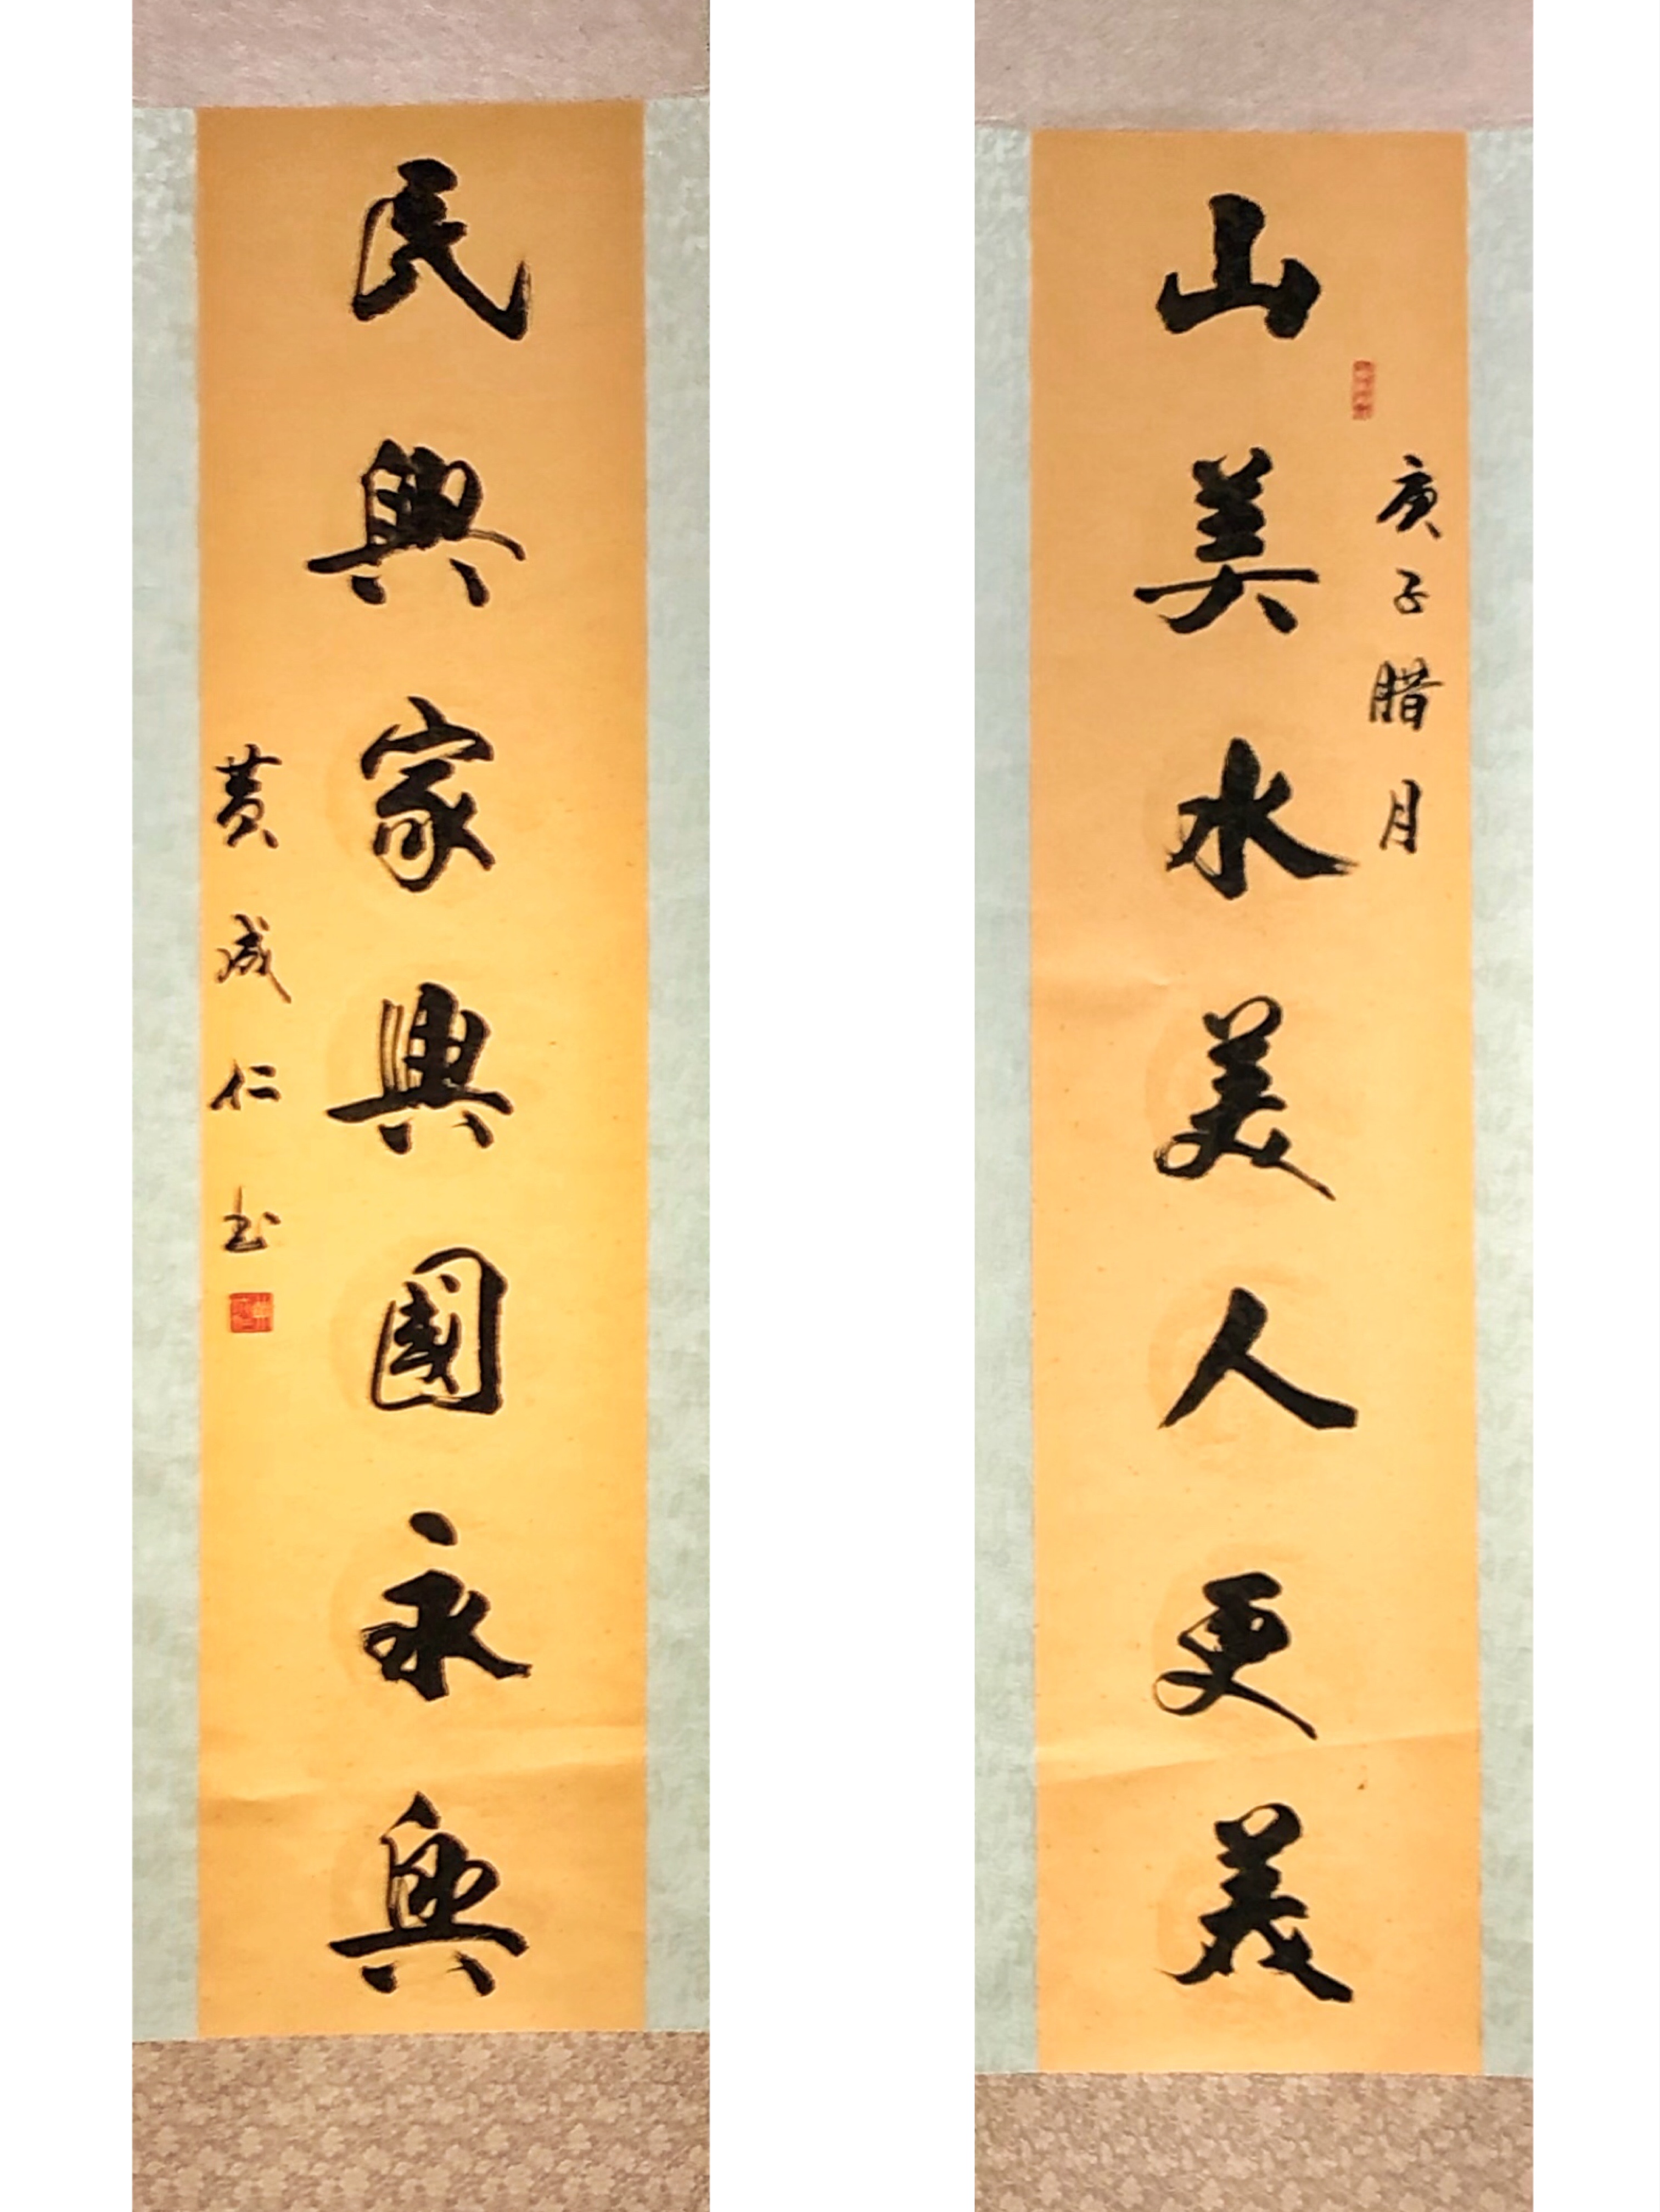 庚子腊月
山美水美人更美
民興家興國永興
黄成仁书